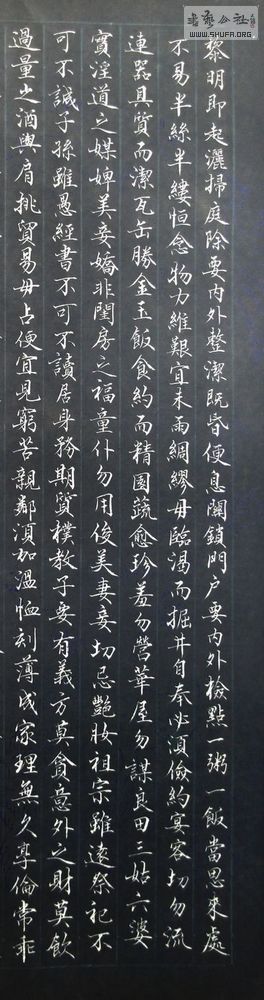 書藝公社
WWW.SHUFA.ORG
黎明即起灑掃庭除要內外整潔既昏便息關鎖門戶要內外檢點一粥一飯當思來處
不易半絲半縷恒念物力維艱宜未雨綢繆毋臨渴而掘井自奉必須儉約宴客切勿流
連器具質而潔瓦缶勝金玉飯食約而精園蔬愈珍羞勿營華屋勿謀良田三姑六婆
實淫道之媒婢美妾嬌非閨房之福童仆勿用俊美妻妾切忌艷妝祖宗雖遠祭祀不
可不誠子孫雖愚經書不可不讀居身務期質樸教子要有義方莫貪意外之財莫飲
過量之酒與肩挑貿易毋占便宜見窮苦親鄰須加溫恤刻薄成家理無久享倫常乖